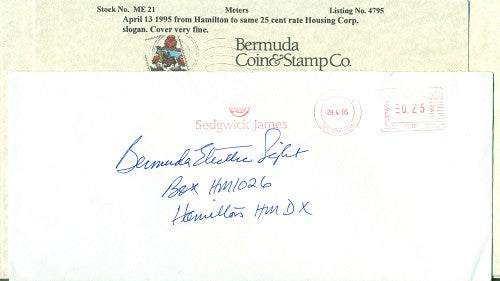 Stock No. ME 21 Meters Listing No. 4795
April 13 1995 from Hamilton to same 25 cent rate Housing Corp.
slogan. Cover very fine.
Bermuda
Coin & Stamp Co.
Sedgwick James
28.4.95
0.25
Bermuda Electric Light
Box HM1026
Hamilton HM DX